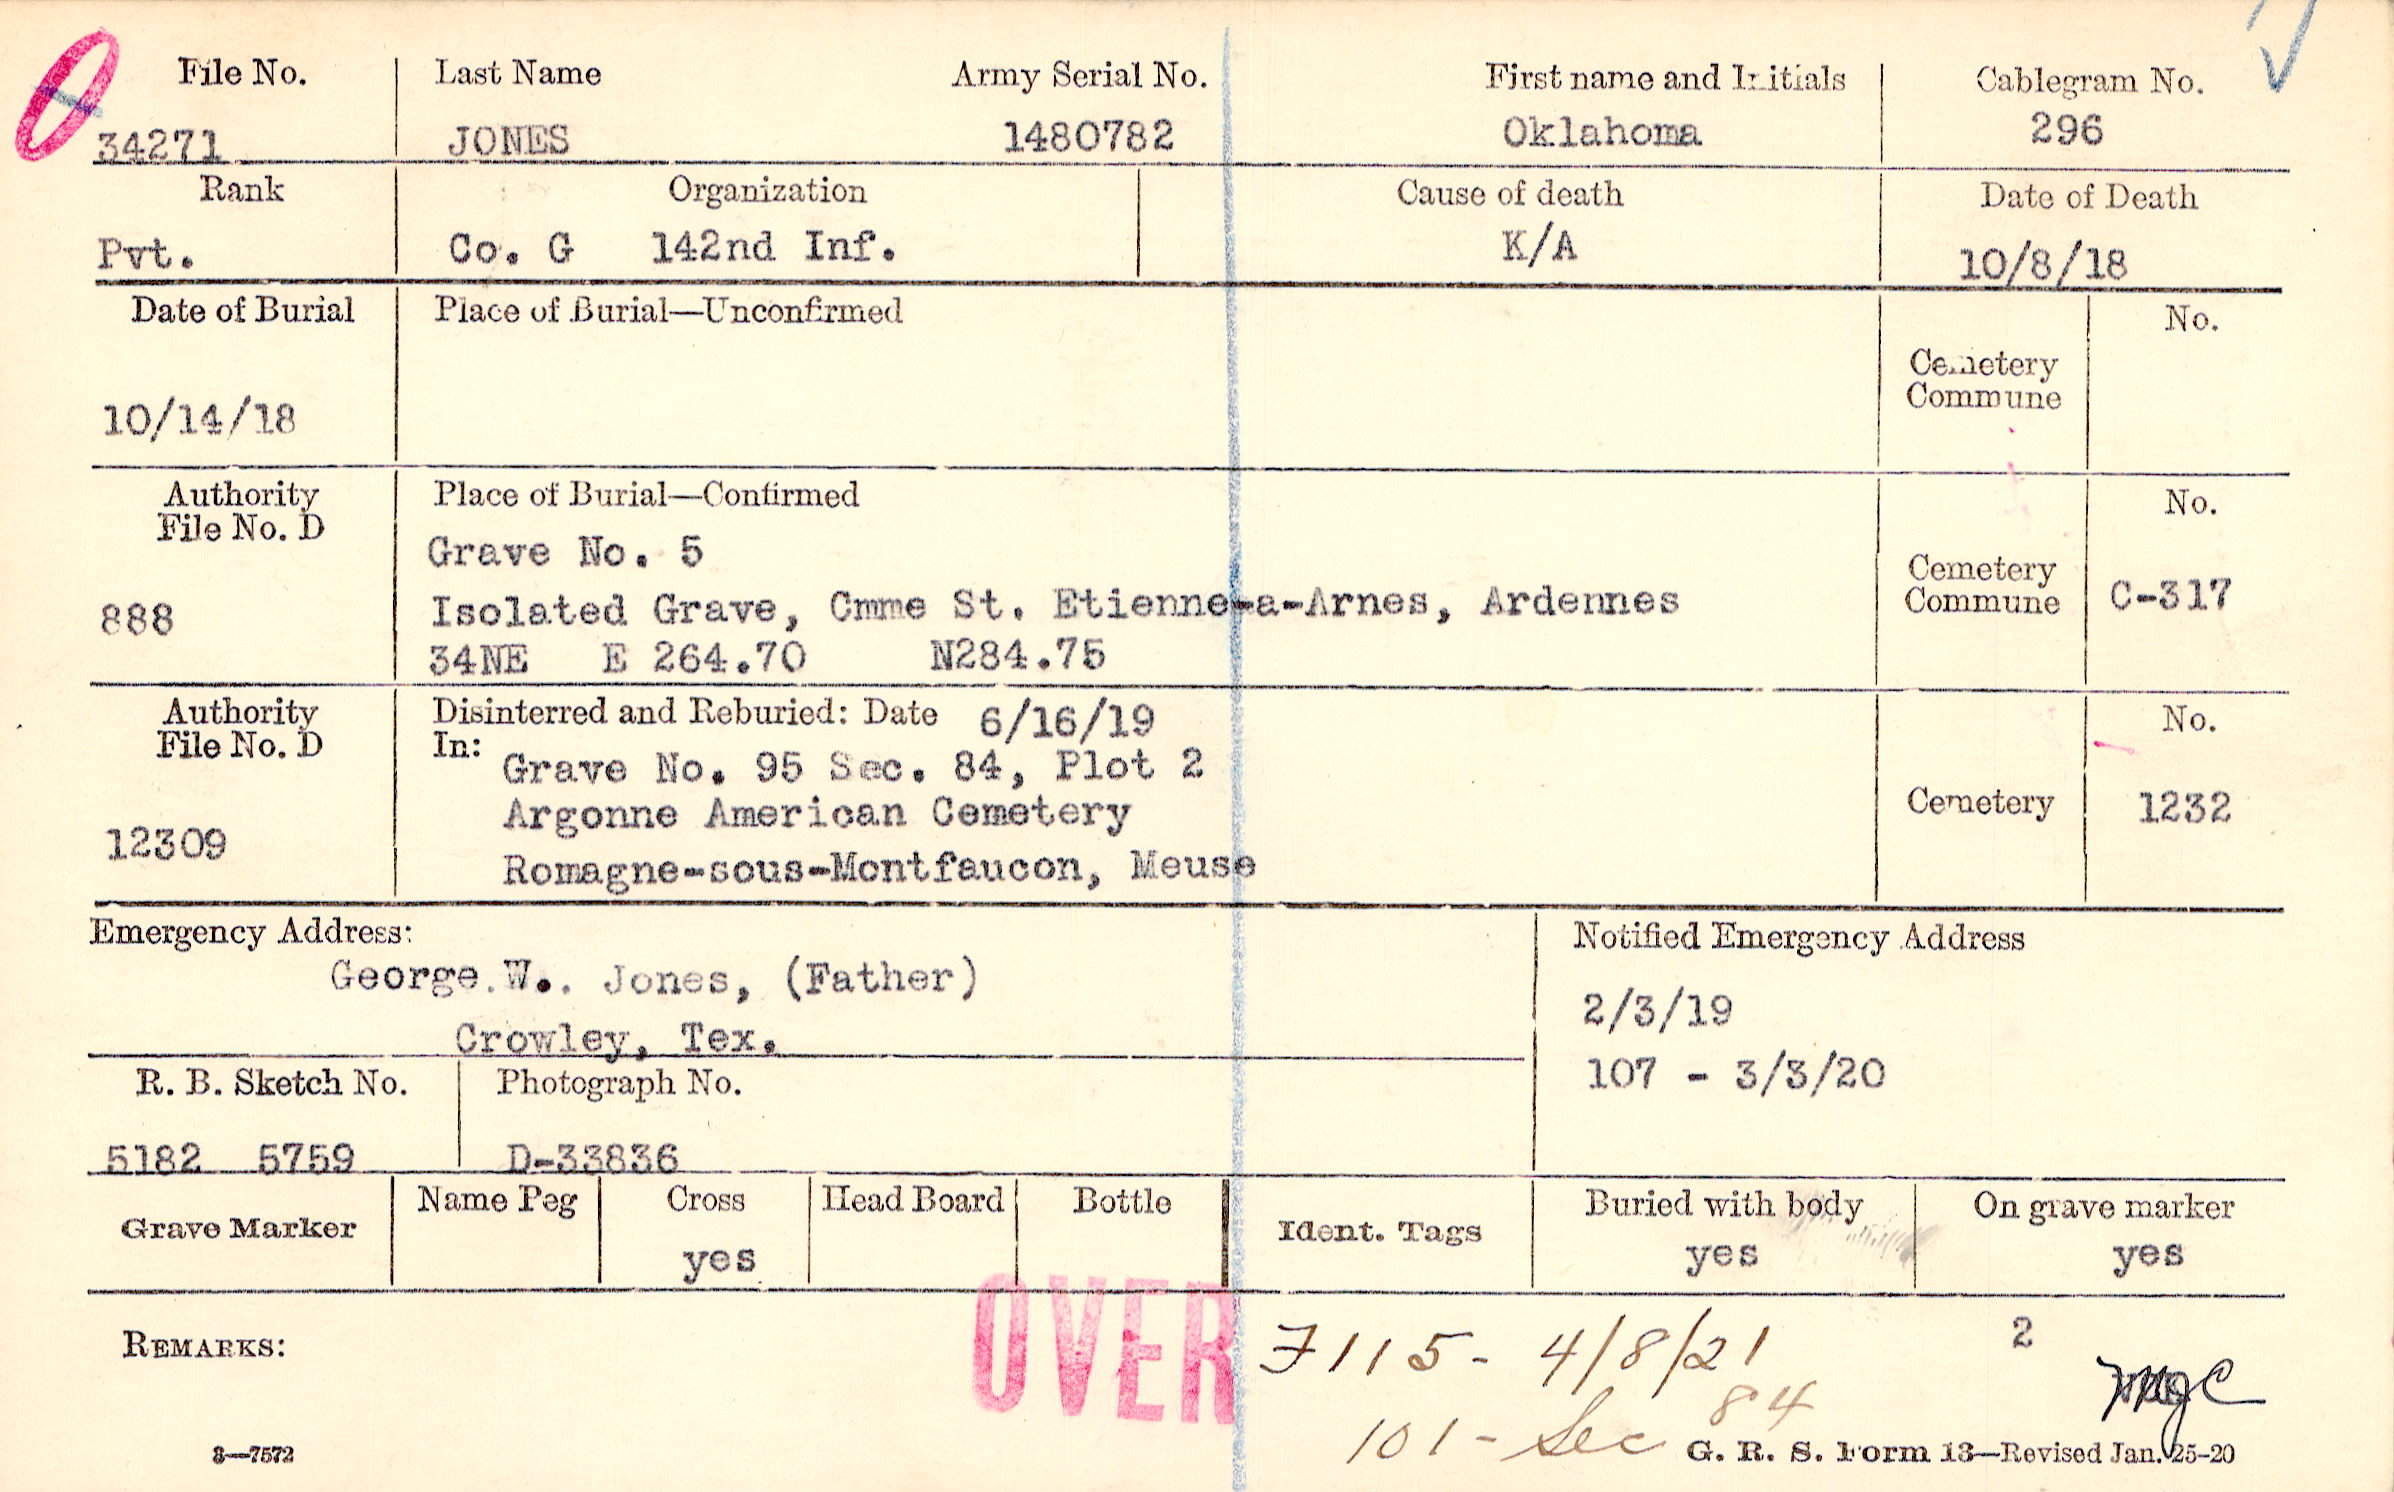 File No. Last Name Army Serial No. First name and Initials Cablegram No.
34271 JONES 1480782 Oklahoma 296
Rank Organization Cause of death Date of Death
Pvt. Co. G 142nd Inf. K/A 10/8/18
Date of Burial Place of Burial—Unconfirmed No.
Cemetery
Commune
10/14/18
Authority Place of Burial—Confirmed No.
File No. D
Grave No. 5
Cemetery
Commune C-317
888 Isolated Grave, Cmme St. Etienne-a-Arnes, Ardennes
34NE E 264.70 N284.75
Authority Disinterred and Reburied: Date 6/16/19 No.
File No. D In:
Grave No. 95 Sec. 84, Plot 2
Argonne American Cemetery Cemetery 1232
12309
Romagne-sous-Montfaucon, Meuse
Emergency Address: Notified Emergency Address
George W. Jones, (Father)
2/3/19
Crowley, Tex.
107 - 3/3/20
R. B. Sketch No. Photograph No.
5182 5759 D-33836
Grave Marker Name Peg Cross Head Board Bottle Ident. Tags Buried with body On grave marker
yes yes yes
OVER
REMARKS: 7115- 4/8/21 2
101- Sec 84
3—7572 G. R. S. Form 13—Revised Jan. 25-20